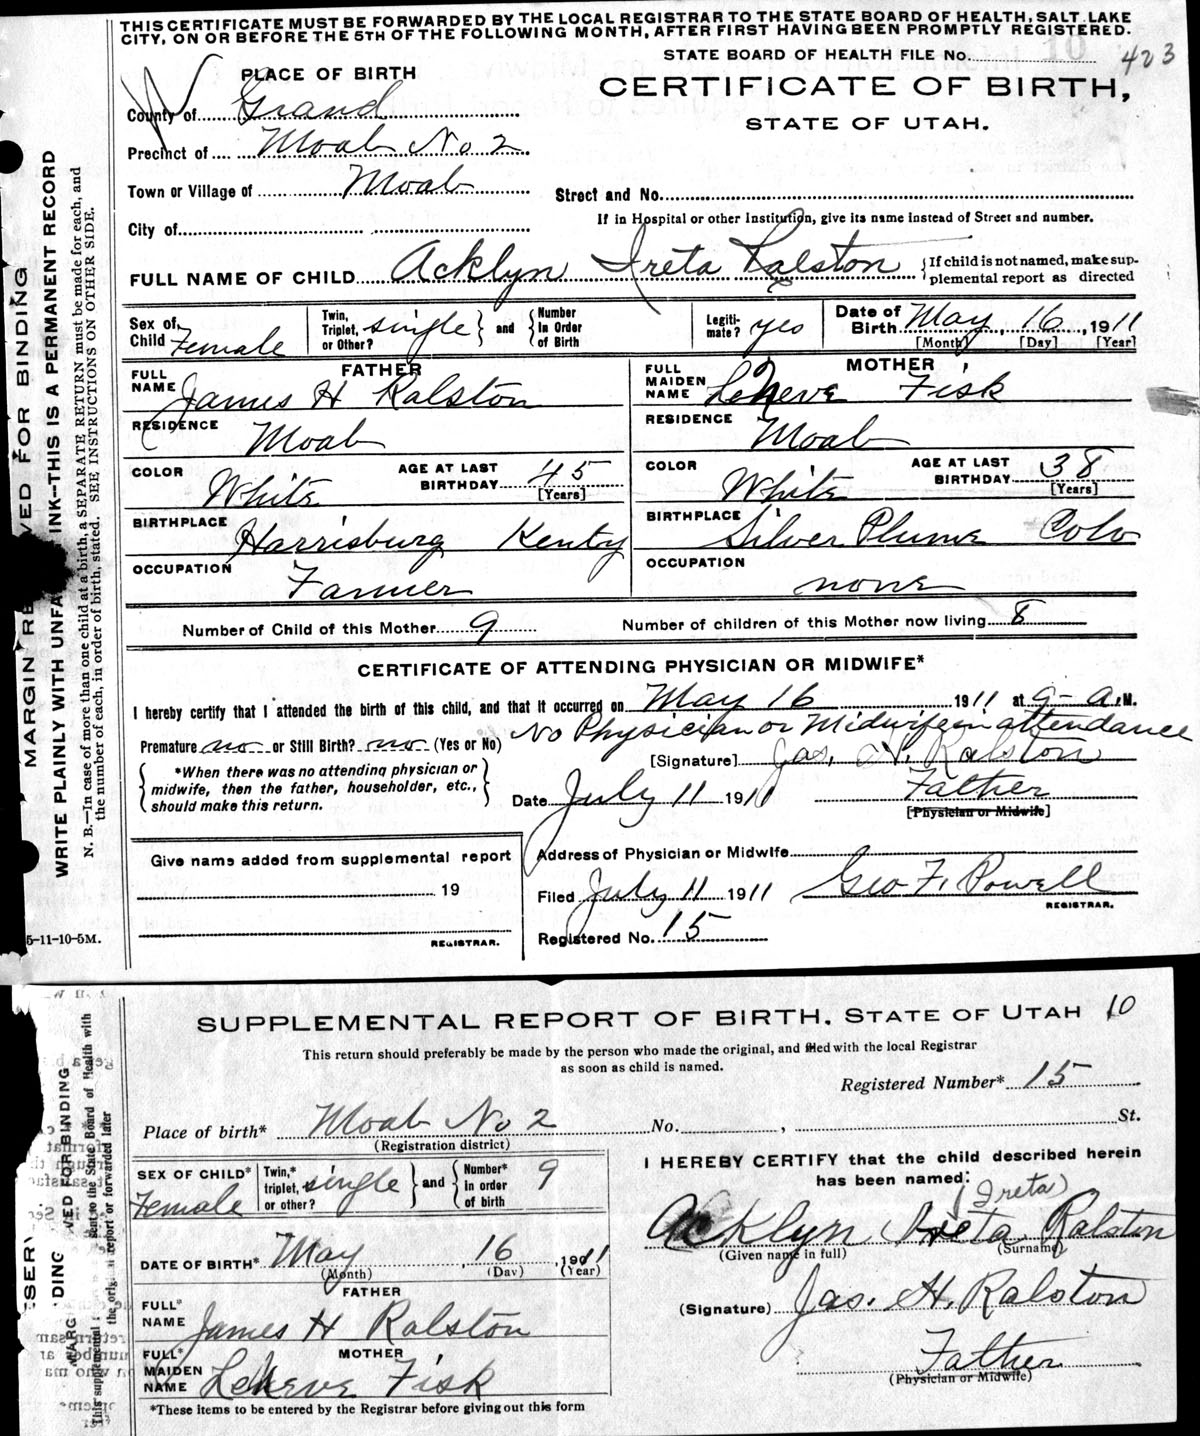 THIS CERTIFICATE MUST BE FORWARDED BY THE LOCAL REGISTRAR TO THE STATE BOARD OF HEALTH, SALT LAKE
CITY, ON OR BEFORE THE 5TH OF THE FOLLOWING MONTH, AFTER FIRST HAVING BEEN PROMPTLY REGISTERED.
STATE BOARD OF HEALTH FILE No. 10 423
PLACE OF BIRTH
CERTIFICATE OF BIRTH,
STATE OF UTAH.
County of Grand
Precinct of Moab No 2
Town or Village of Moab
Street and No.
City of
If in Hospital or other Institution, give its name instead of Street and number.
FULL NAME OF CHILD Acklyn Ireta Ralston {If child is not named, make sup-
plemental report as directed
Sex of Child Female
Twin, Triplet, or Other? single } and { Number in Order of Birth
Legiti-mate? yes
Date of Birth May, 16, 1911
[Month] [Day] [Year]
FATHER
FULL NAME James H Ralston
RESIDENCE Moab
COLOR White AGE AT LAST BIRTHDAY 45 [Years]
BIRTHPLACE Harrisburg Kenty
OCCUPATION Farmer
MOTHER
FULL MAIDEN NAME Leneve Fisk
RESIDENCE Moab
COLOR White AGE AT LAST BIRTHDAY 38 [Years]
BIRTHPLACE Silver Plume Colo
OCCUPATION none
Number of Child of this Mother 9 Number of children of this Mother now living 8
CERTIFICATE OF ATTENDING PHYSICIAN OR MIDWIFE*
I hereby certify that I attended the birth of this child, and that it occurred on May 16 1911 at 9- A.M.
No Physician or Midwife in attendance
Premature no or Still Birth? no (Yes or No)
[Signature] Jas. H. Ralston
*When there was no attending physician or
midwife, then the father, householder, etc.,
should make this return.
Date July 11 1911 Father
[Physician or Midwife]
Give name added from supplemental report
19
REGISTRAR.
Address of Physician or Midwife
Filed July 11 1911 Geo F. Powell
REGISTRAR.
Registered No. 15
5-11-10-5M.
MARGIN RE VED FOR BINDING
WRITE PLAINLY WITH UNFA INK--THIS IS A PERMANENT RECORD
N. B.—In case of more than one child at a birth, a SEPARATE RETURN must be made for each, and
the number of each, in order of birth, stated. SEE INSTRUCTIONS ON OTHER SIDE.
SUPPLEMENTAL REPORT OF BIRTH. STATE OF UTAH 10
This return should preferably be made by the person who made the original, and filed with the local Registrar
as soon as child is named.
Registered Number* 15
Place of birth* Moab No 2 No. , St.
(Registration district)
SEX OF CHILD* Female
Twin,* triplet, or other? single } and { Number* in order of birth 9
DATE OF BIRTH* May, 16, 1911
(Month) (Day) (Year)
FATHER
FULL* NAME James H Ralston
MOTHER
FULL* MAIDEN NAME Leneve Fisk
*These items to be entered by the Registrar before giving out this form
I HEREBY CERTIFY that the child described herein
has been named:
(Ireta)
Acklyn Ireta Ralston
(Given name in full) (Surname)
(Signature) Jas. H. Ralston
Father
(Physician or Midwife)